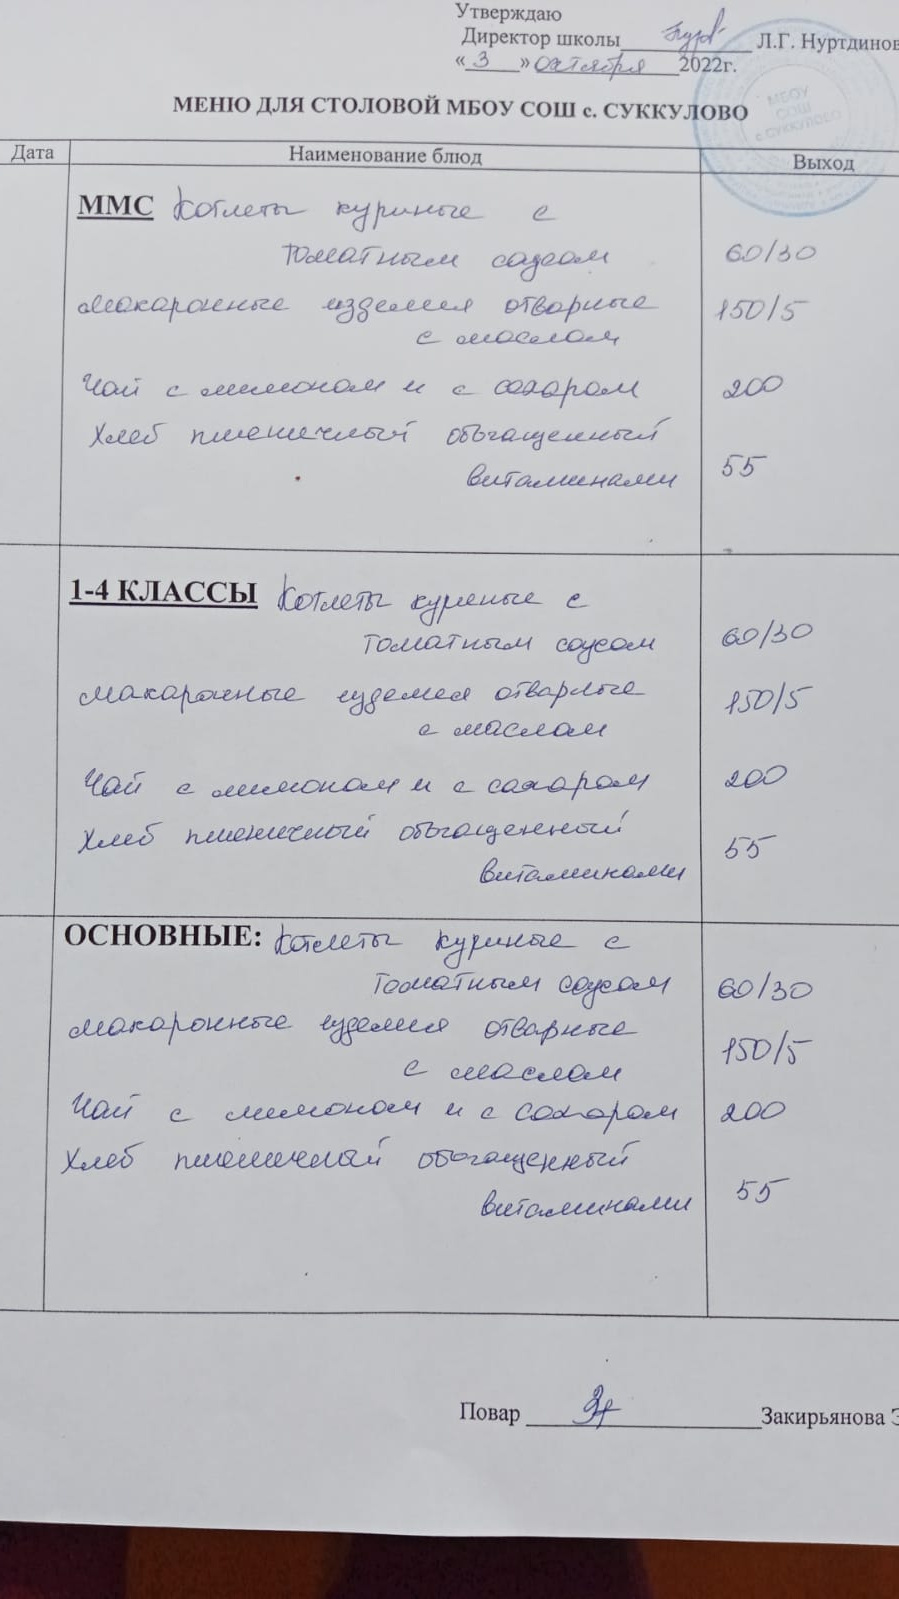 Утверждаю
Директор школы Л.Г. Нуртдинов
« 3 » октября 2022г.
МБОУ
СОШ
с СУККУЛОВО
МЕНЮ ДЛЯ СТОЛОВОЙ МБОУ СОШ с. СУККУЛОВО
Дата Наименование блюд Выход
ММС Котлеты куриные с
томатным соусом 60/30
макаронные изделия отварные 150/5
с маслом
Чай с лимоном и с сахаром 200
Хлеб пшеничный обогащенный
витаминами 55
1-4 КЛАССЫ Котлеты куриные с
томатным соусом 60/30
макаронные изделия отварные 150/5
с маслом
Чай с лимоном и с сахаром 200
Хлеб пшеничный обогащенный 55
витаминами
ОСНОВНЫЕ: Котлеты куриные с
томатным соусом 60/30
макаронные изделия отварные 150/5
с маслом
Чай с лимоном и с сахаром 200
Хлеб пшеничный обогащенный
витаминами 55
Повар Закирьянова З